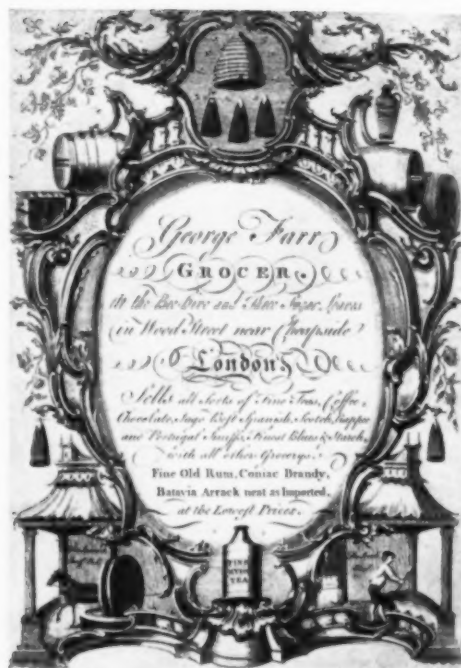 George Farr
GROCER,
At the Bee-hive and Three Sugar Loaves
in Wood Street near Cheapside
London,
Sells all Sorts of Fine Teas, Coffee,
Chocolate, Sago Best Spanish, Scotch, Rappee
and Portugal Snuffs, Finest Blues & Starch,
with all other Grocerys.
Fine Old Rum, Coniac Brandy,
Batavia Arrack neat as Imported,
at the Lowest Prices.
FINE
HYSON
TEA